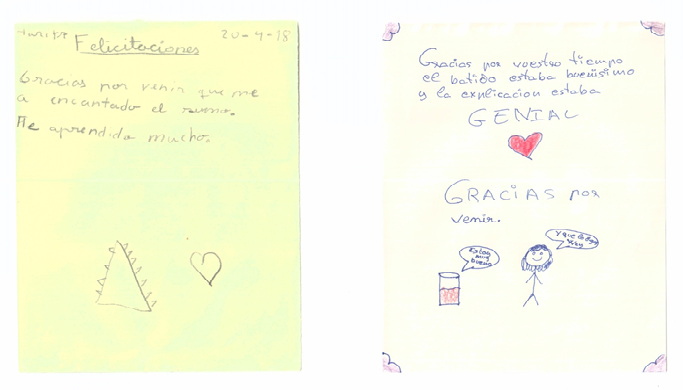 Felicitaciones
20-4-18
Gracias por venir que me
a encantado el
He aprendido mucho.
Gracias por vuestro tiempo
el batido estaba buenísimo
y la explicacion estaba
GENIAL
GRACIAS por
venir.
Estoy
muy
bueno
Y que lo digas